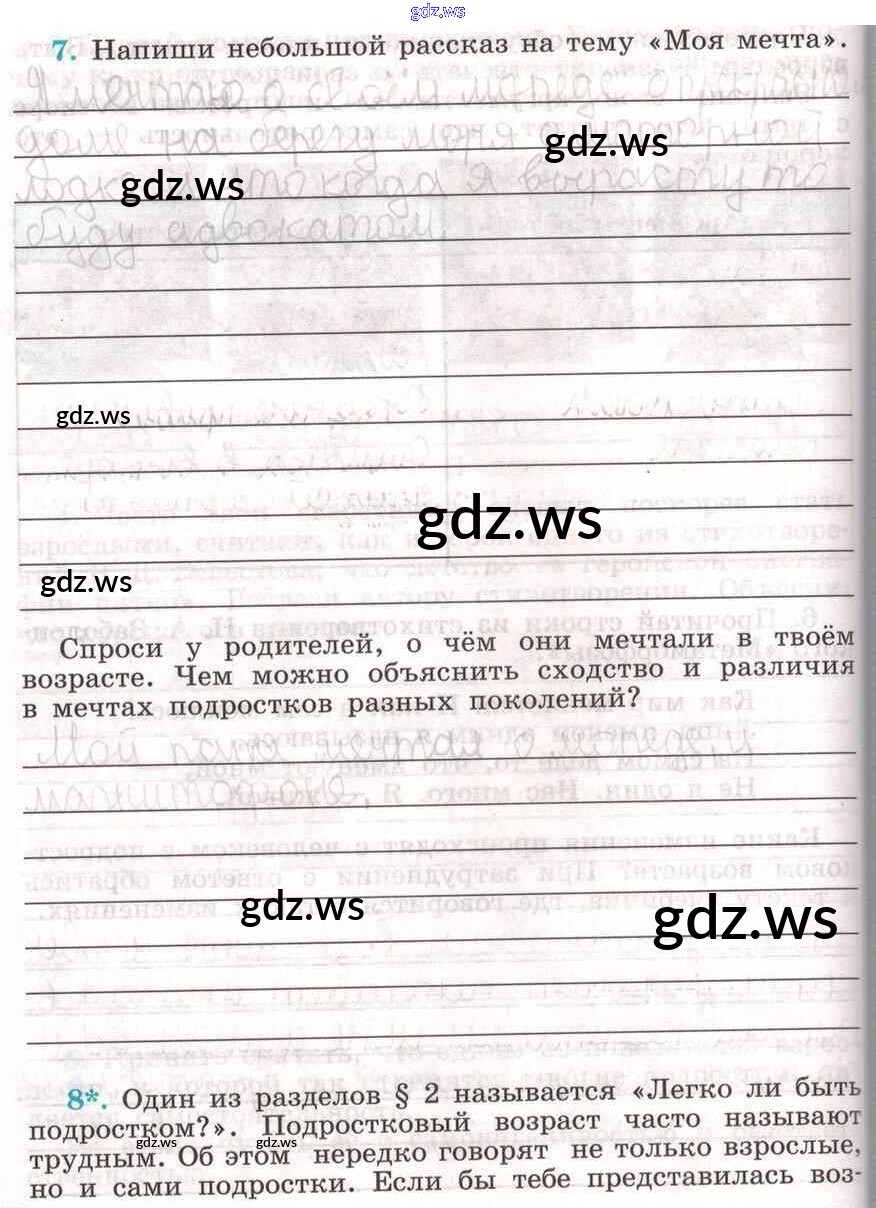 gdz.ws
7. Напиши небольшой рассказ на тему «Моя мечта».
Я мечтаю о своём
доме на берегу моря с
gdz.ws
лодкой что когда я вырасту то
gdz.ws
буду адвокатом.
gdz.ws
gdz.ws
gdz.ws
Спроси у родителей, о чём они мечтали в твоём
возрасте. Чем можно объяснить сходство и различия
в мечтах подростков разных поколений?
Мой папа мечтал о
gdz.ws
gdz.ws
8*. Один из разделов § 2 называется «Легко ли быть
подростком?». Подростковый возраст часто называют
gdz.ws gdz.ws
трудным. Об этом нередко говорят не только взрослые,
но и сами подростки. Если бы тебе представилась воз-